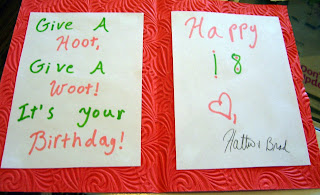 Give A
Hoot,
Give A
Woot!
It's your
Birthday!
Happy
18
♡,
& Brad